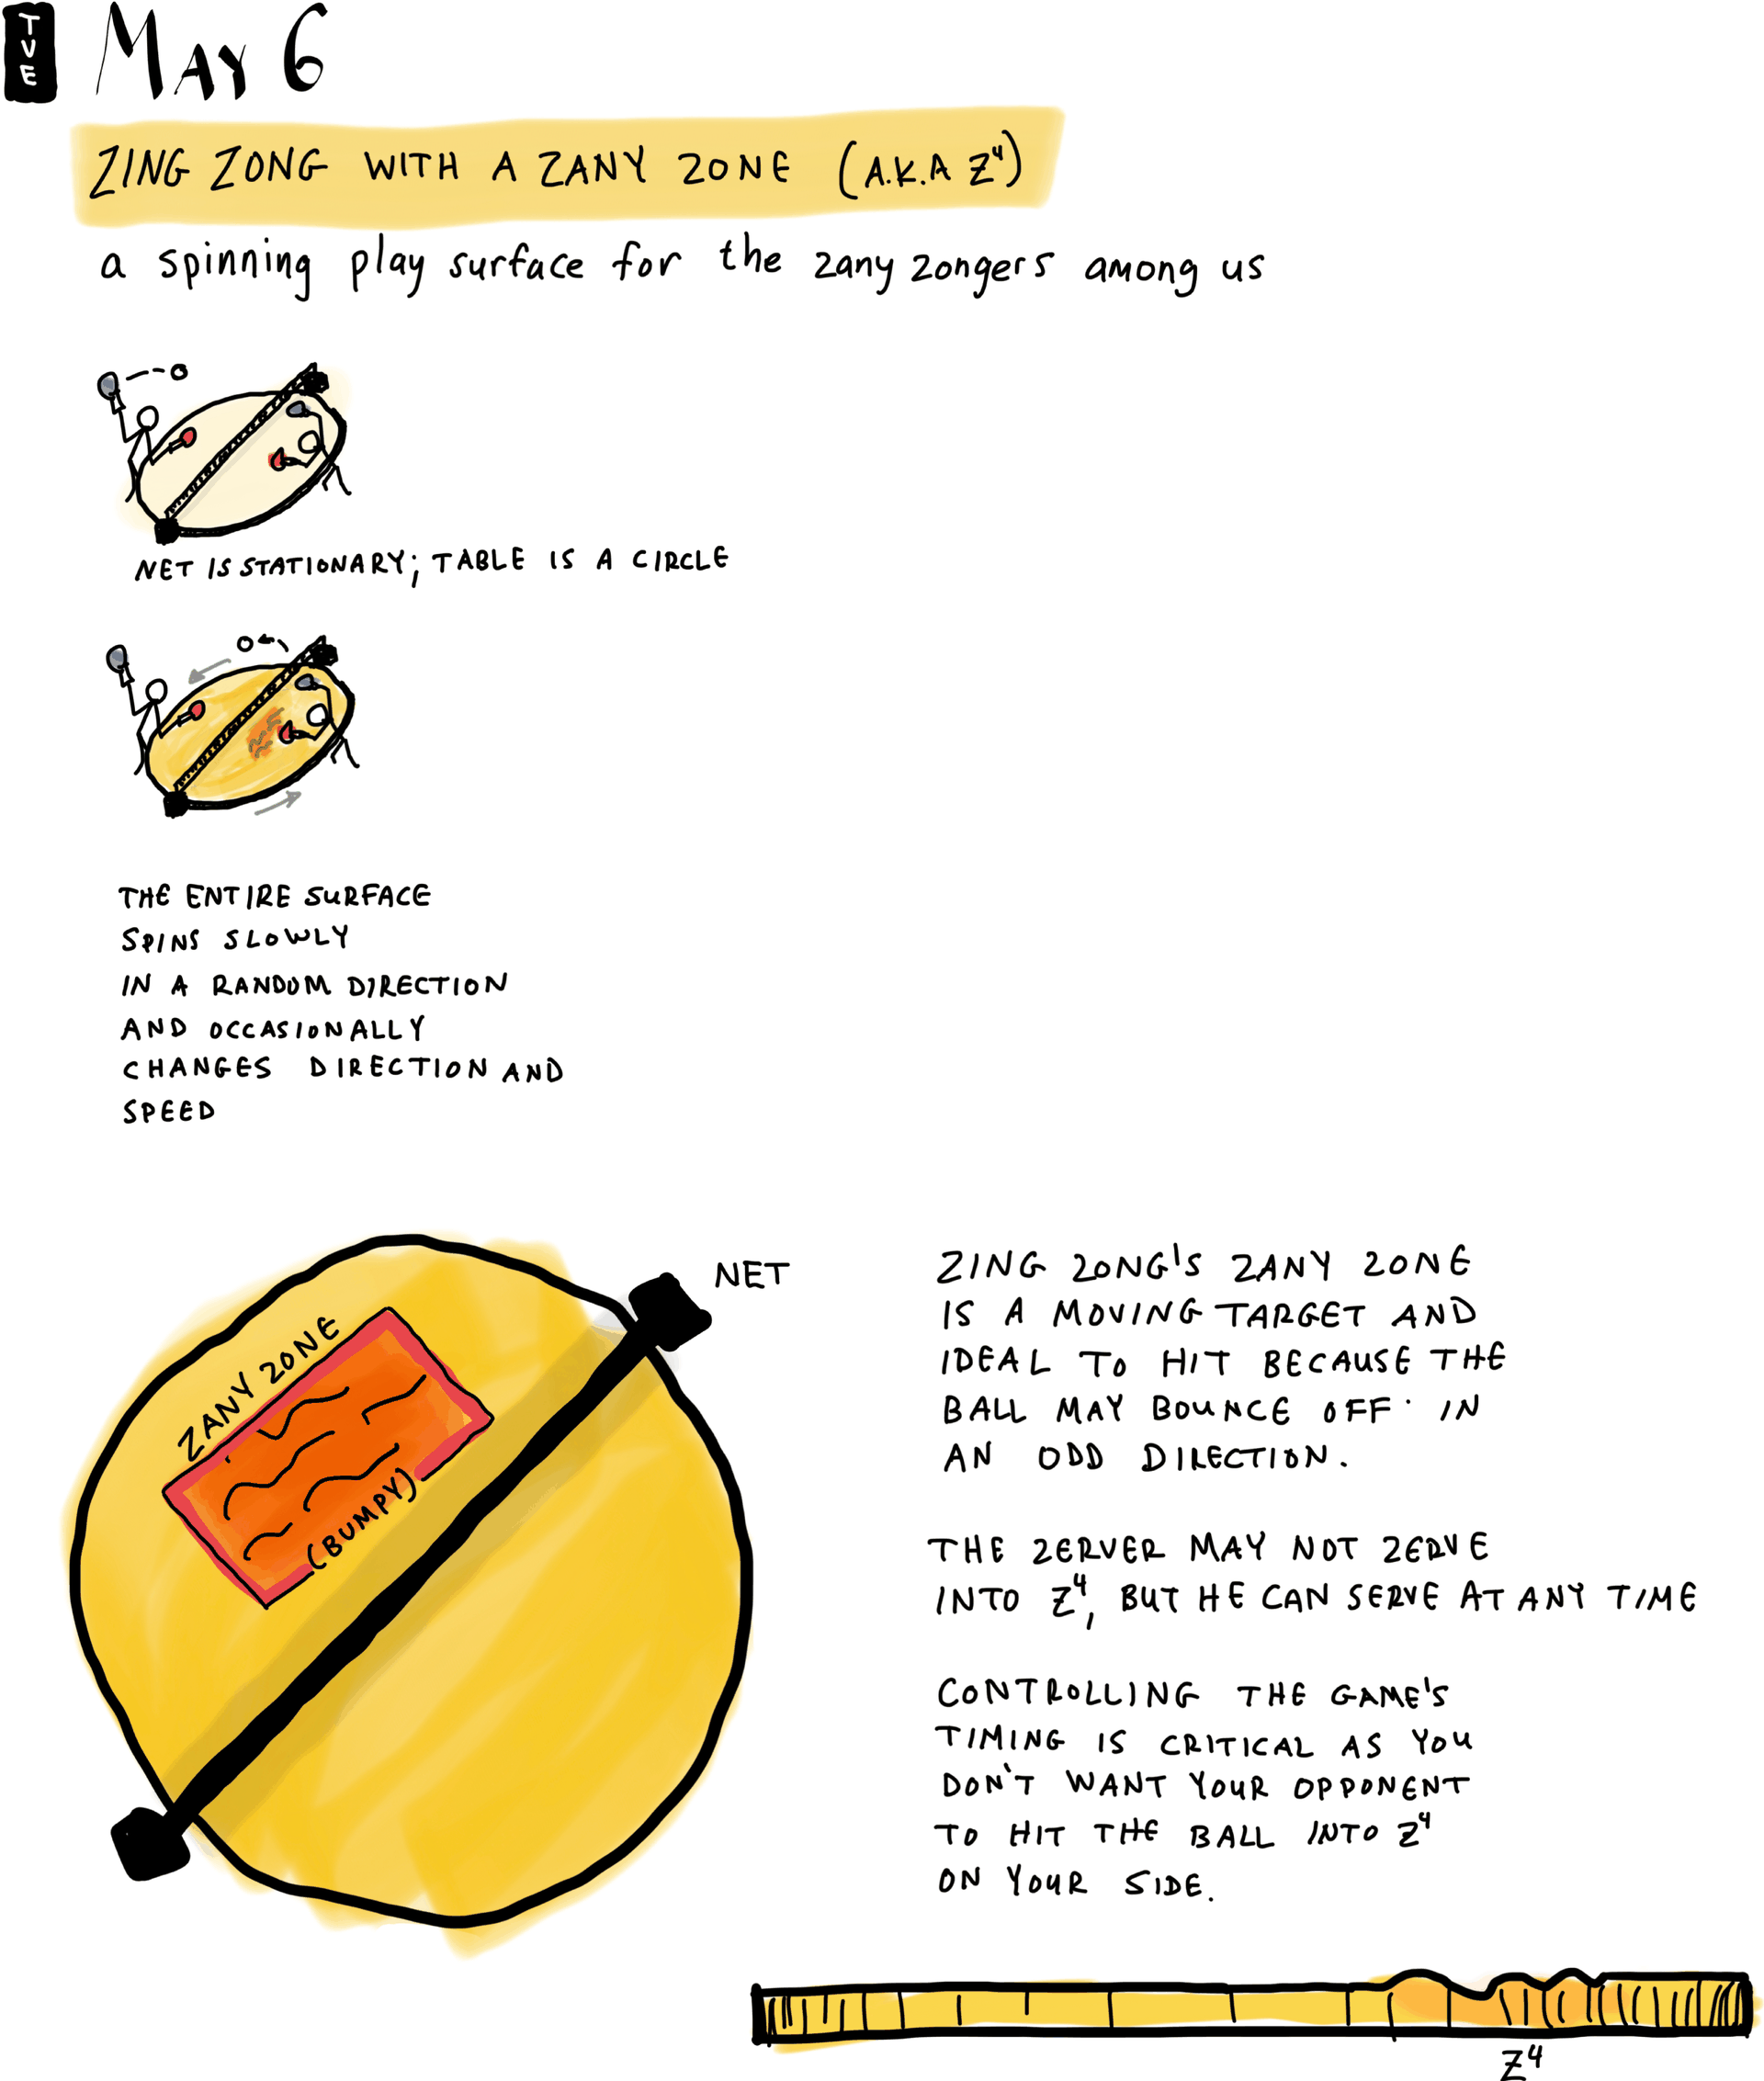 TUE
MAY 6
ZING ZONG WITH A ZANY ZONE (A.K.A Z⁴)
a spinning play surface for the zany zongers among us
NET IS STATIONARY; TABLE IS A CIRCLE
THE ENTIRE SURFACE
SPINS SLOWLY
IN A RANDOM DIRECTION
AND OCCASIONALLY
CHANGES DIRECTION AND
SPEED
NET
ZANY ZONE
(BUMPY)
ZING ZONG'S ZANY ZONE
IS A MOVING TARGET AND
IDEAL TO HIT BECAUSE THE
BALL MAY BOUNCE OFF IN
AN ODD DIRECTION.
THE ZERVER MAY NOT ZERVE
INTO Z⁴, BUT HE CAN SERVE AT ANY TIME
CONTROLLING THE GAME'S
TIMING IS CRITICAL AS YOU
DON'T WANT YOUR OPPONENT
TO HIT THE BALL INTO Z⁴
ON YOUR SIDE.
Z⁴